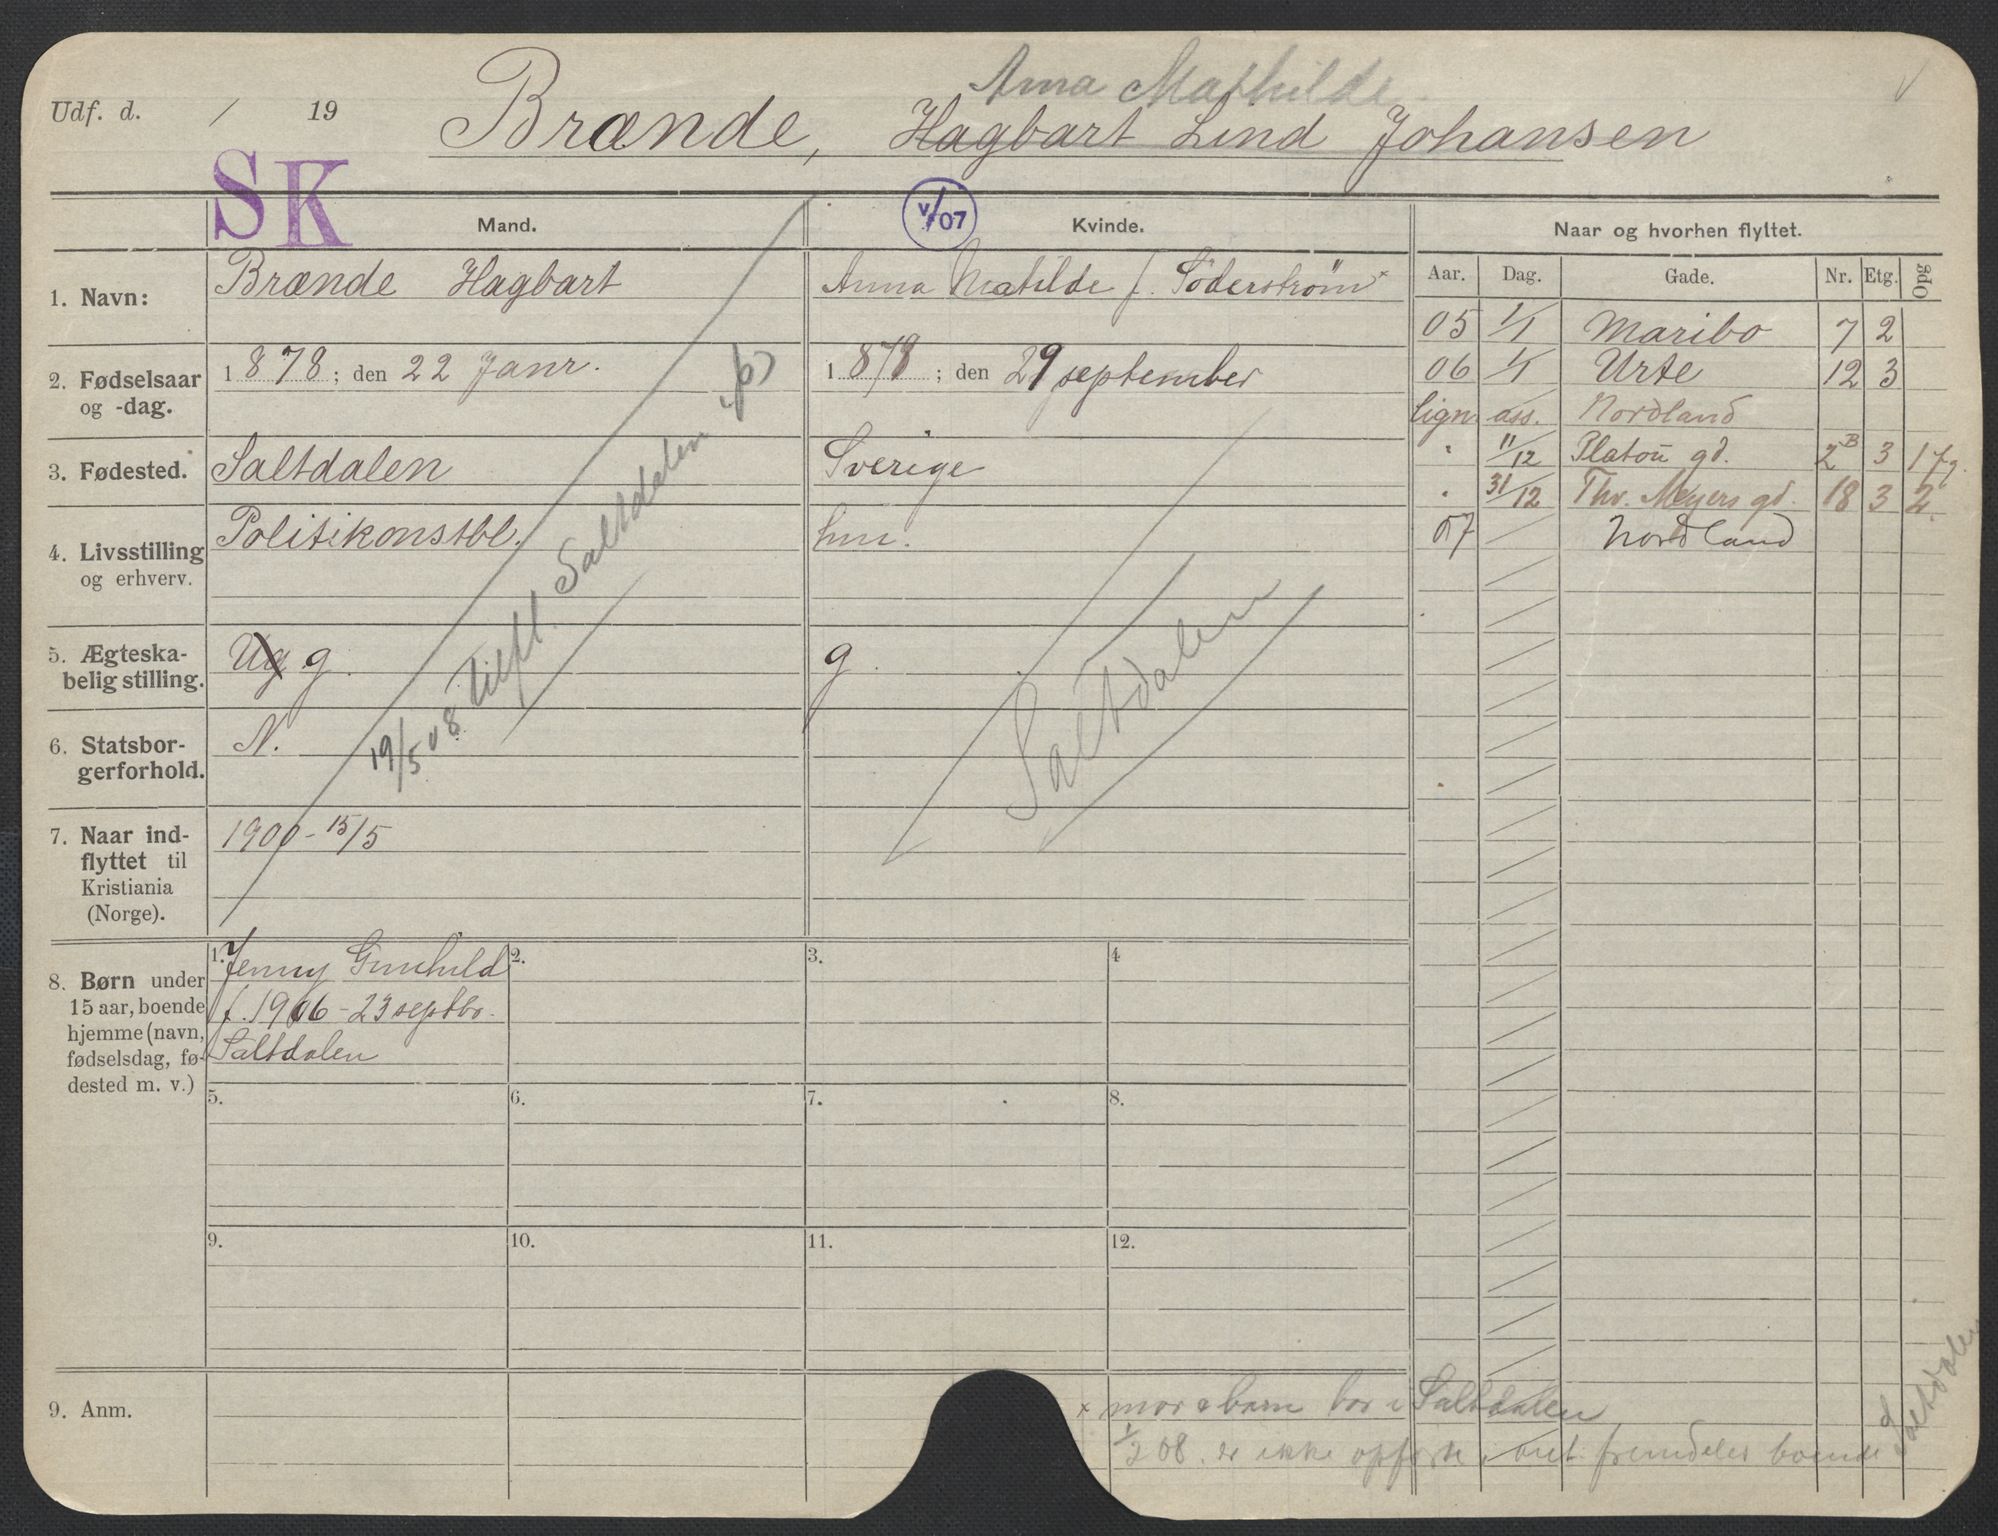 Anna Mathilde.
Udf. d. / 19
Brænde, Hagbart Lind Johansen
SK
V/07
Mand.
Kvinde.
Naar og hvorhen flyttet.
Aar. Dag. Gade. Nr. Etg. Opg
1. Navn:
Brænde Hagbart
Anna Matilde f. Söderström ×
2. Fødselsaar
og -dag.
1878; den 22 Janr.
1878; den 29 september
3. Fødested.
Saltdalen
Sverige
4. Livsstilling
og erhverv.
Politikonstbl.
hm.
5. Ægteska-
belig stilling.
Ug g.
g.
6. Statsbor-
gerforhold.
N.
7. Naar ind-
flyttet til
Kristiania
(Norge).
1900 - 15/5
19/5 08 tilfl. Saltdalen
Saltdalen
05 1/1 Maribo 7 2
06 1/1 Urte 12 3
lign. ass. Nordland
" 11/12 Platou gd. 2B 3 1
" 31/12 Thv. Meyers gd. 18 3 2.
07 / Nordland
8. Børn under
15 aar, boende
hjemme (navn,
fødselsdag, fø-
dested m. v.)
1. Jenny Gunhild
f. 1906 - 23 septbr.
Saltdalen
2.
3.
4
5.
6.
7.
8.
9.
10.
11.
12.
9. Anm.
× mor & barn bor i Saltdalen
1/2 08. er ikke opført, fremdeles boende
Saltdalen